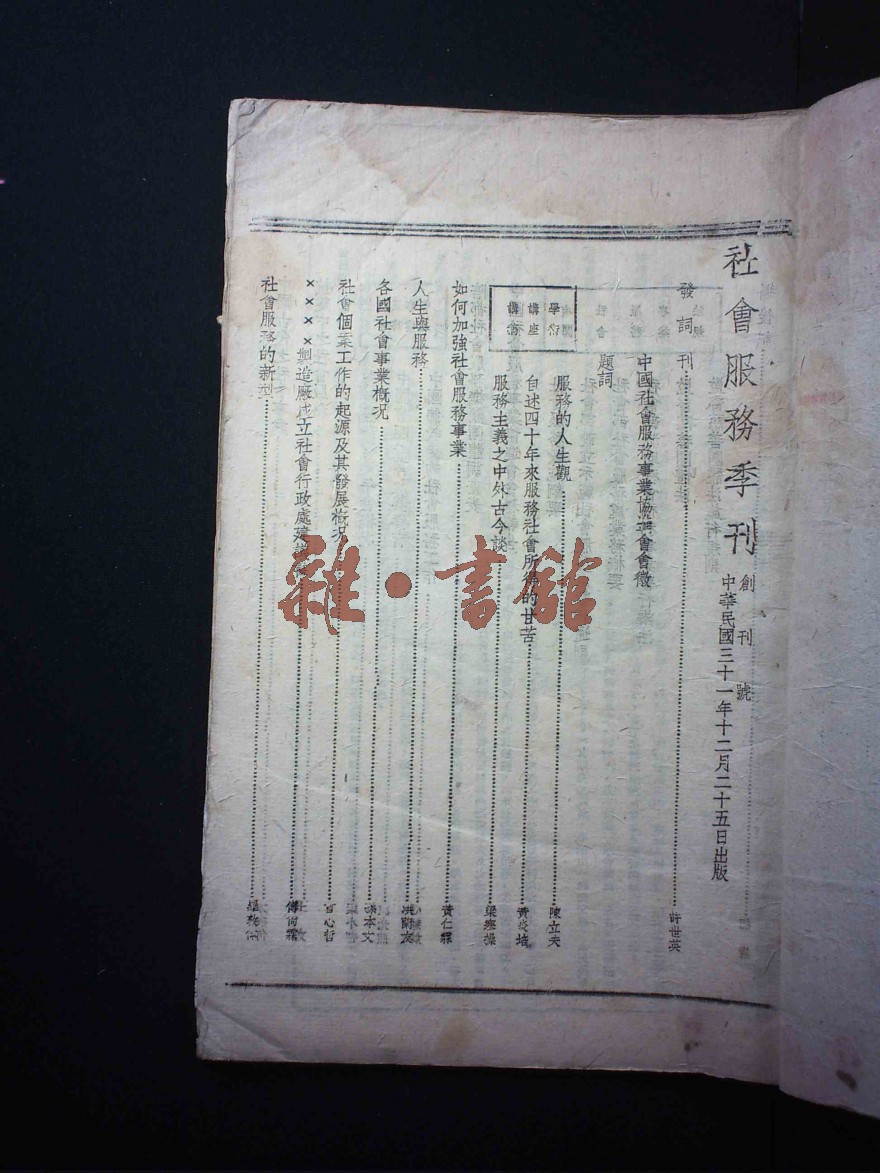 社會服務季刊
創刊號
中華民國三十一年十二月二十五日出版
發刊詞 許世英
中國社會服務事業協會會徽
題詞
學術講座講演
服務的人生觀 陳立夫
自述四十年來服務社會所得的甘苦 黃炎培
服務主義之中外古今談 梁寒操
如何加強社會服務事業 黃仁霖
人生與服務 洪蘭友
各國社會事業概况 孫本文
社會個案工作的起源及其發展概况 言心哲
××××製造廠成立社會行政處建議 傅尚霖
社會服務的新型
雜·書館